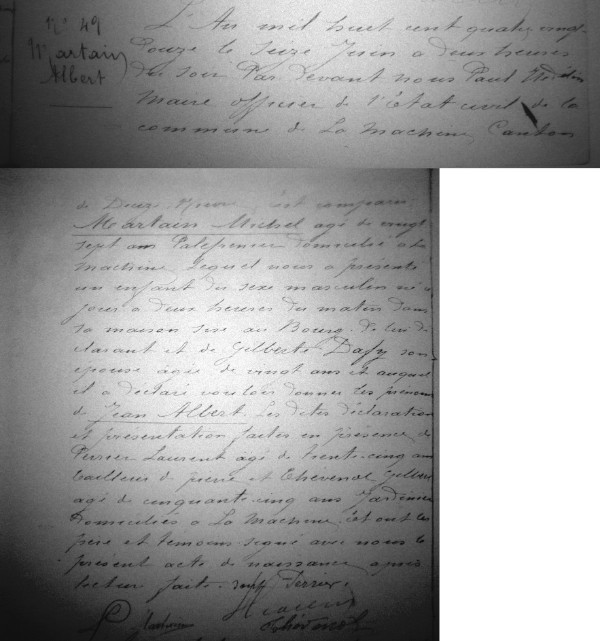 N° 49
Martain
Albert
L'An mil huit cent quatre vingt
Douze le Seize Juin a deux heures
du soir Par devant nous Paul
Maire officier de l'Etat civil de la
commune de La Machine, Canton
de Decize est comparu
Martain Michel agé de vingt
sept ans Palefrenier domicilié a La
Machine, lequel nous a présenté
un enfant du sexe masculin né ce
jour a deux heures du matin dans
sa maison sise au Bourg. De lui dé-
clarant et de Gilberte Dafy son
épouse agée de vingt ans et auquel
il a déclaré vouloir donner les prénoms
de Jean Albert. Les dites déclaration
et présentation faites en présence de
Perrier Laurent agé de trente-cinq ans
tailleur de pierre et Thévenet Gilbert
agé de cinquante-cinq ans Jardinier
domiciliés a La Machine. Et ont les
père et témoins signé avec nous le
présent acte de naissance après
lecture faite. sauf Perrier.
Martain